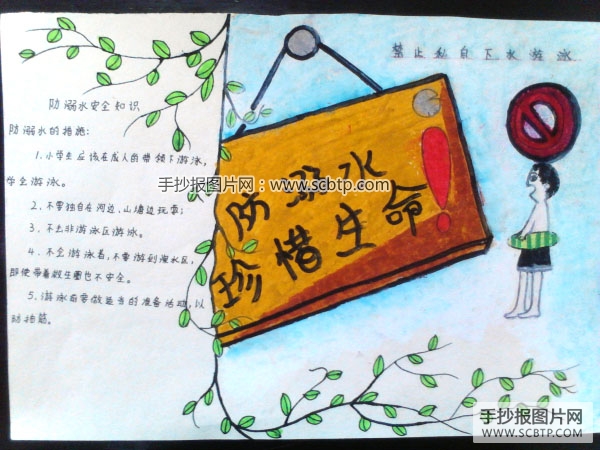 禁止私自下水游泳
防溺水安全知识
防溺水的措施:
1.小学生应该在成人的带领下游泳,
学会游泳。
2.不要独自在河边、山塘边玩耍;
3.不去非游泳区游泳。
4.不会游泳者,不要游到深水区,
即使带着救生圈也不安全。
5.游泳前要做适当的准备活动,以
防抽筋。
防溺水
珍惜生命!
手抄报图片网:www.scbtp.com
手抄报图片网
WWW.SCBTP.COM